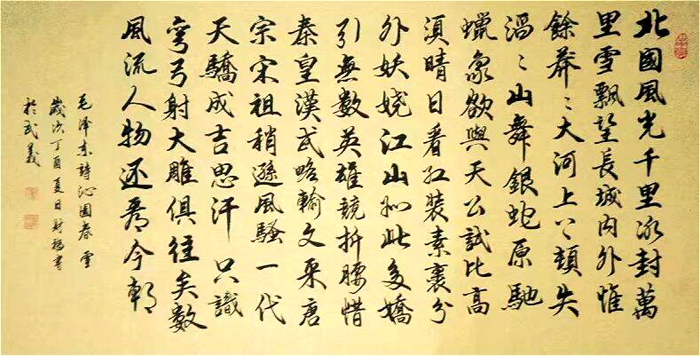 北國風光千里冰封萬
里雪飄望長城内外惟
餘莽〻大河上下頓失
滔〻山舞銀蛇原馳
蠟象欲與天公試比高
須晴日看紅裝素裹分
外妖嬈江山如此多嬌
引無數英雄競折腰惜
秦皇漢武略輸文采唐
宗宋祖稍遜風騷一代
天驕成吉思汗只識
彎弓射大雕俱往矣數
風流人物还看今朝
毛澤東詩沁園春雪
歲次丁酉夏日財書
於武義